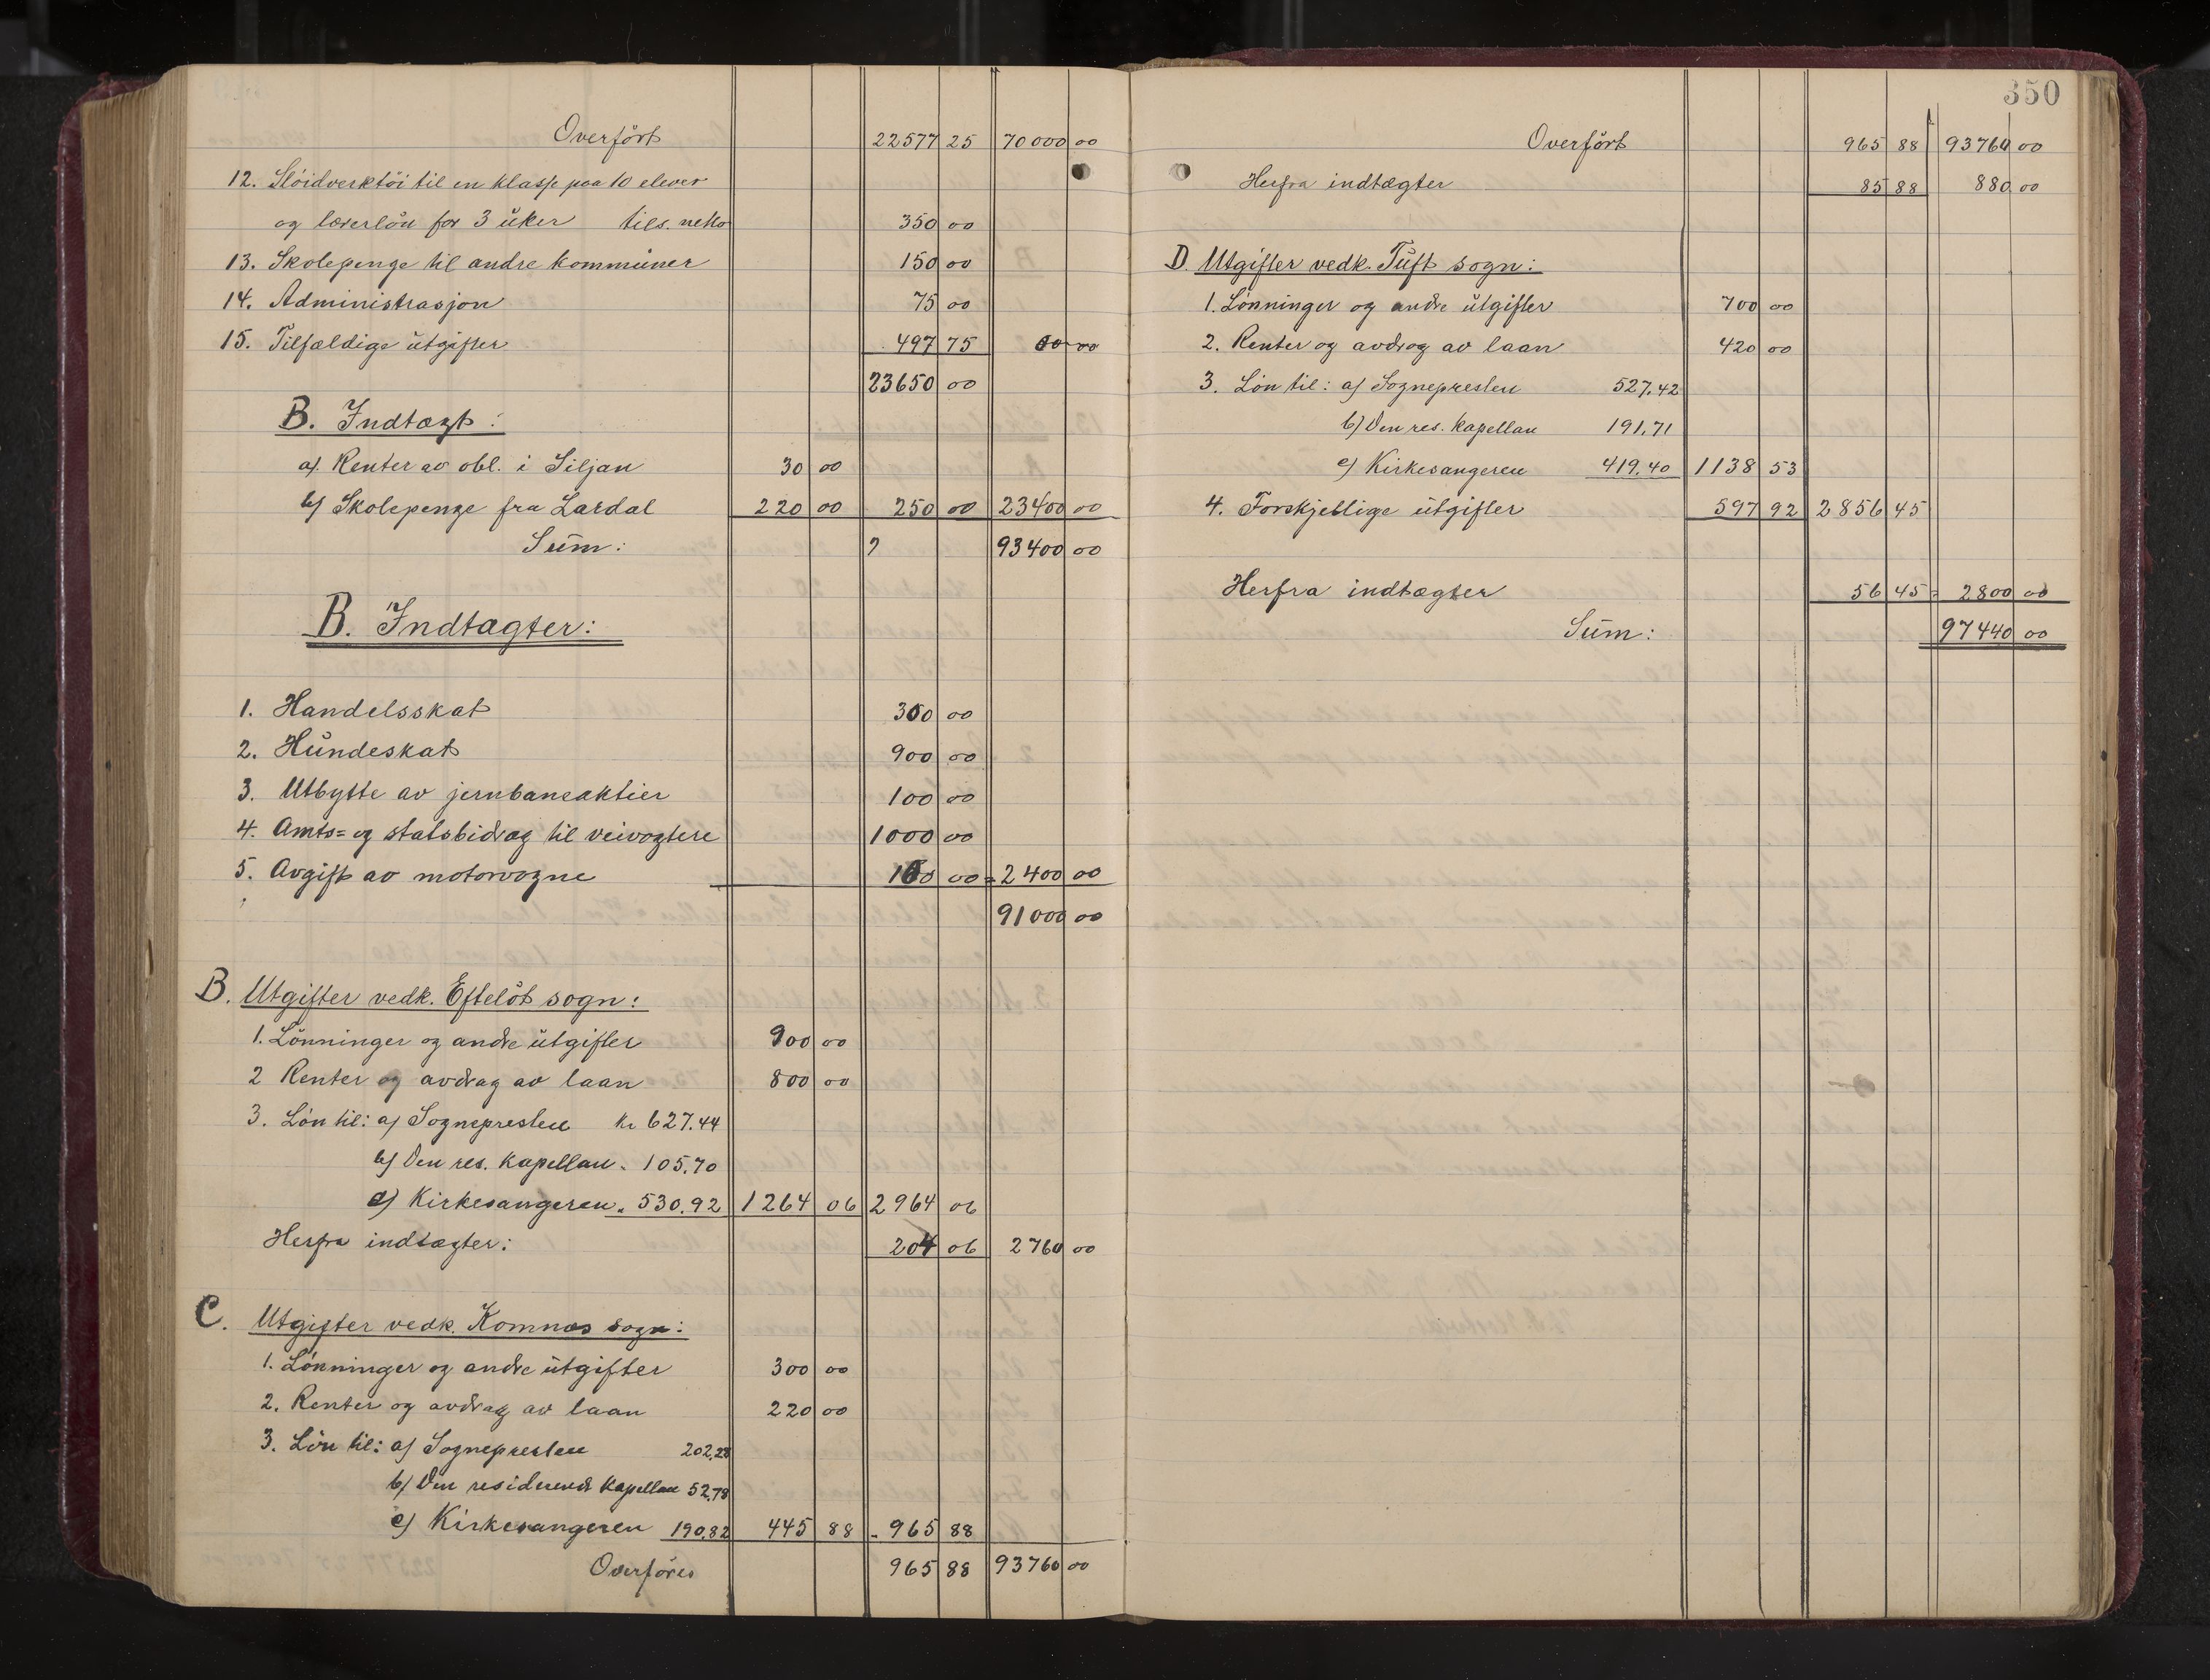 Overført 22577 25 70000 00
12. Slöidverktöi til en klasse paa 10 elever
og lærerlön for 3 uker tils. netto 350 00
13. Skolepenge til andre kommuner 150 00
14. Administrasjon 75 00
15. Tilfældige utgifter 497 75
23650 00
B. Indtægt:
a) Renter av obl. i Siljan 30 00
b) Skolepenge fra Lardal 220 00 250 00 23400 00
Sum: 93400 00
B. Indtægter:
1. Handelsskat 300 00
2. Hundeskat 900 00
3. Utbytte av jernbaneaktier 100 00
4. Amts= og statsbidrag til veivogtere 1000 00
5. Avgift av motorvogne 100 00 = 2400 00
91000 00
B. Utgifter vedk. Efteløt sogn:
1. Lönninger og andre utgifter 900 00
2 Renter og avdrag av laan 800 00
3. Lön til: a) Sognepresten kr 627.44
b) Den res. kapellan " 105.70
c) Kirkesangeren " 530.92 1264 06 2964 06
Herfra indtægter: 204 06 2760 00
C. Utgifter vedk. Komnes sogn:
1. Lönninger og andre utgifter 300 00
2. Renter og avdrag av laan 220 00
3. Lön til: a) Sognepresten 202,28
b) Den residerende kapellan 52,78
c) Kirkesangeren 190,82 445 88 - 965 88
Overföres 965 88 93760 00
350
Overført 965 88 93760 00
Herfra indtægter 85 88 880 00
D. Utgifter vedk. Tuft sogn:
1. Lönninger og andre utgifter 700 00
2. Renter og avdrag av laan 420 00
3. Lön til: a) Sognepresten 527.42
b) Den res. kapellan 191.71
c) Kirkesangeren 419.40 1138 53
4. Forskjellige utgifter 597 92 2856 45
Herfra indtægter 56 45 = 2800 00
Sum: 97440 00